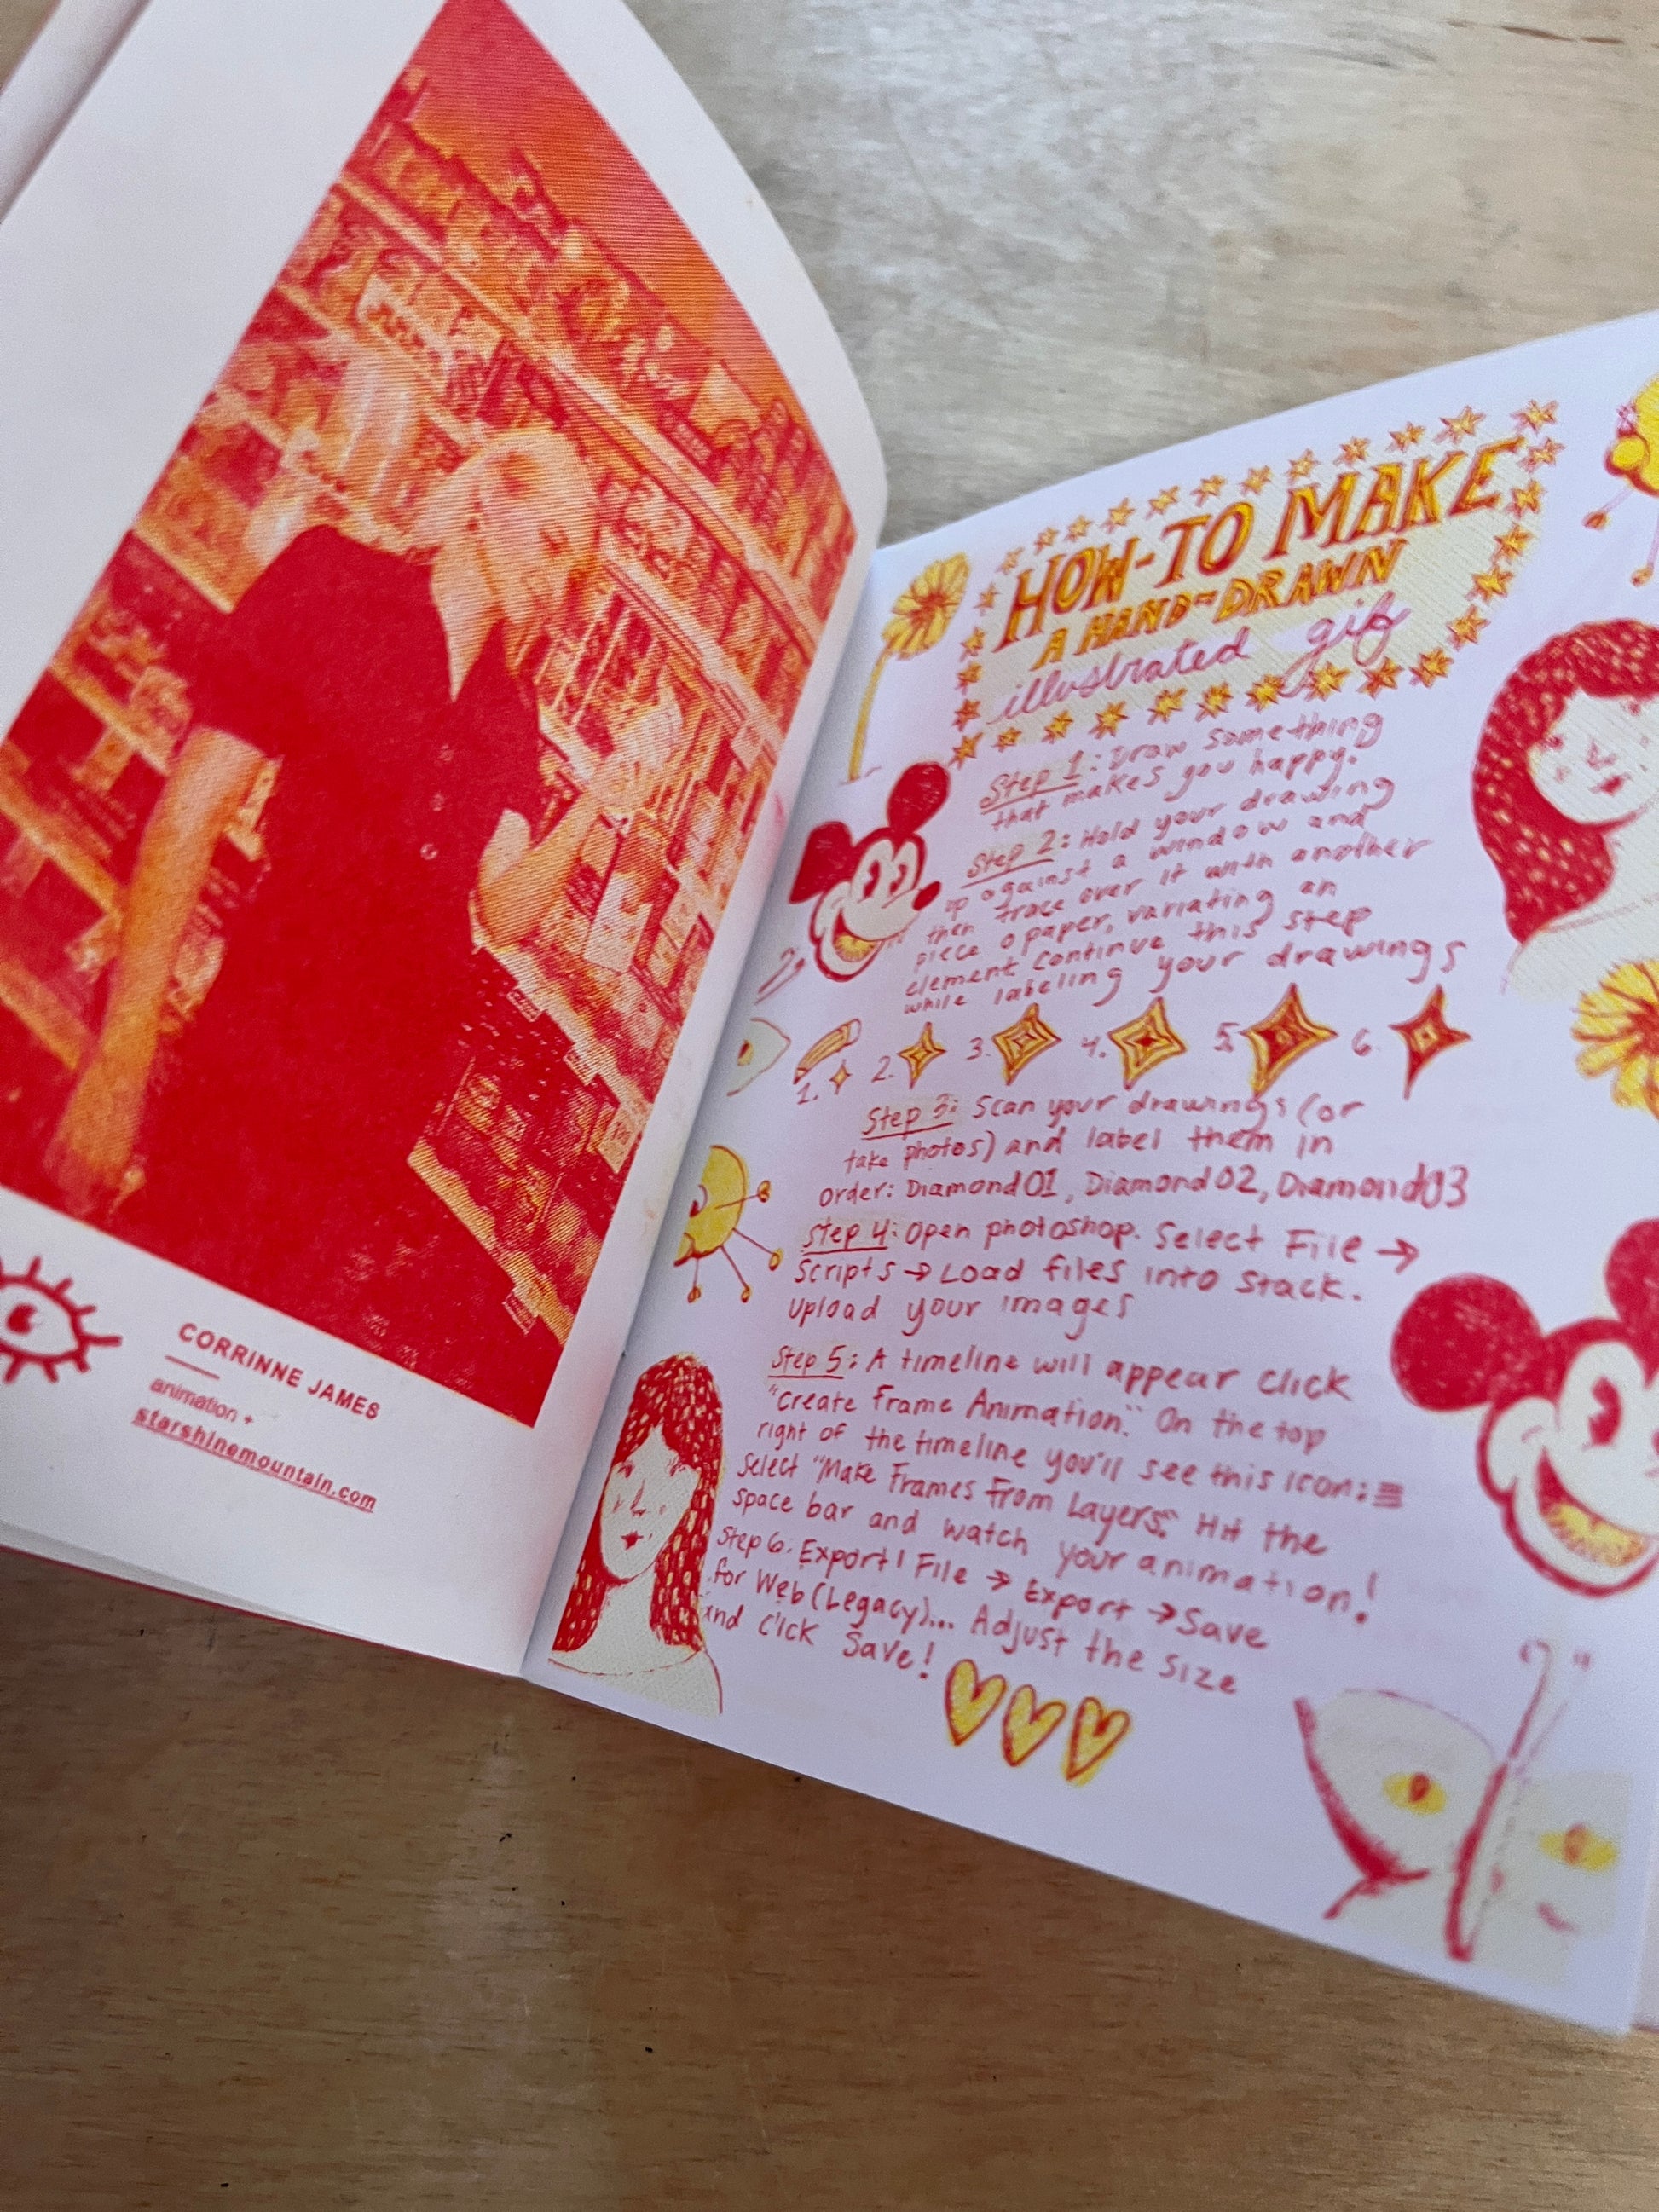 CORRINNE JAMES
animation +
starshinemountain.com
HOW-TO MAKE
A HAND-DRAWN
illustrated gif
Step 1: Draw something
that makes you happy.
Step 2: Hold your drawing
up against a window and
then trace over it with another
piece o paper, variating an
element continue this step
while labeling your drawings
1. 2. 3. 4. 5. 6.
Step 3: Scan your drawings (or
take photos) and label them in
order: Diamond01, Diamond02, Diamond03
Step 4: Open photoshop. Select File →
Scripts → Load files into stack.
Upload your images
Step 5: A timeline will appear click
"Create Frame Animation." On the top
right of the timeline you'll see this icon: ≡
Select "Make Frames From Layers." Hit the
space bar and watch your animation!
Step 6: Export! File → Export → Save
for Web (Legacy)... Adjust the size
and click Save!